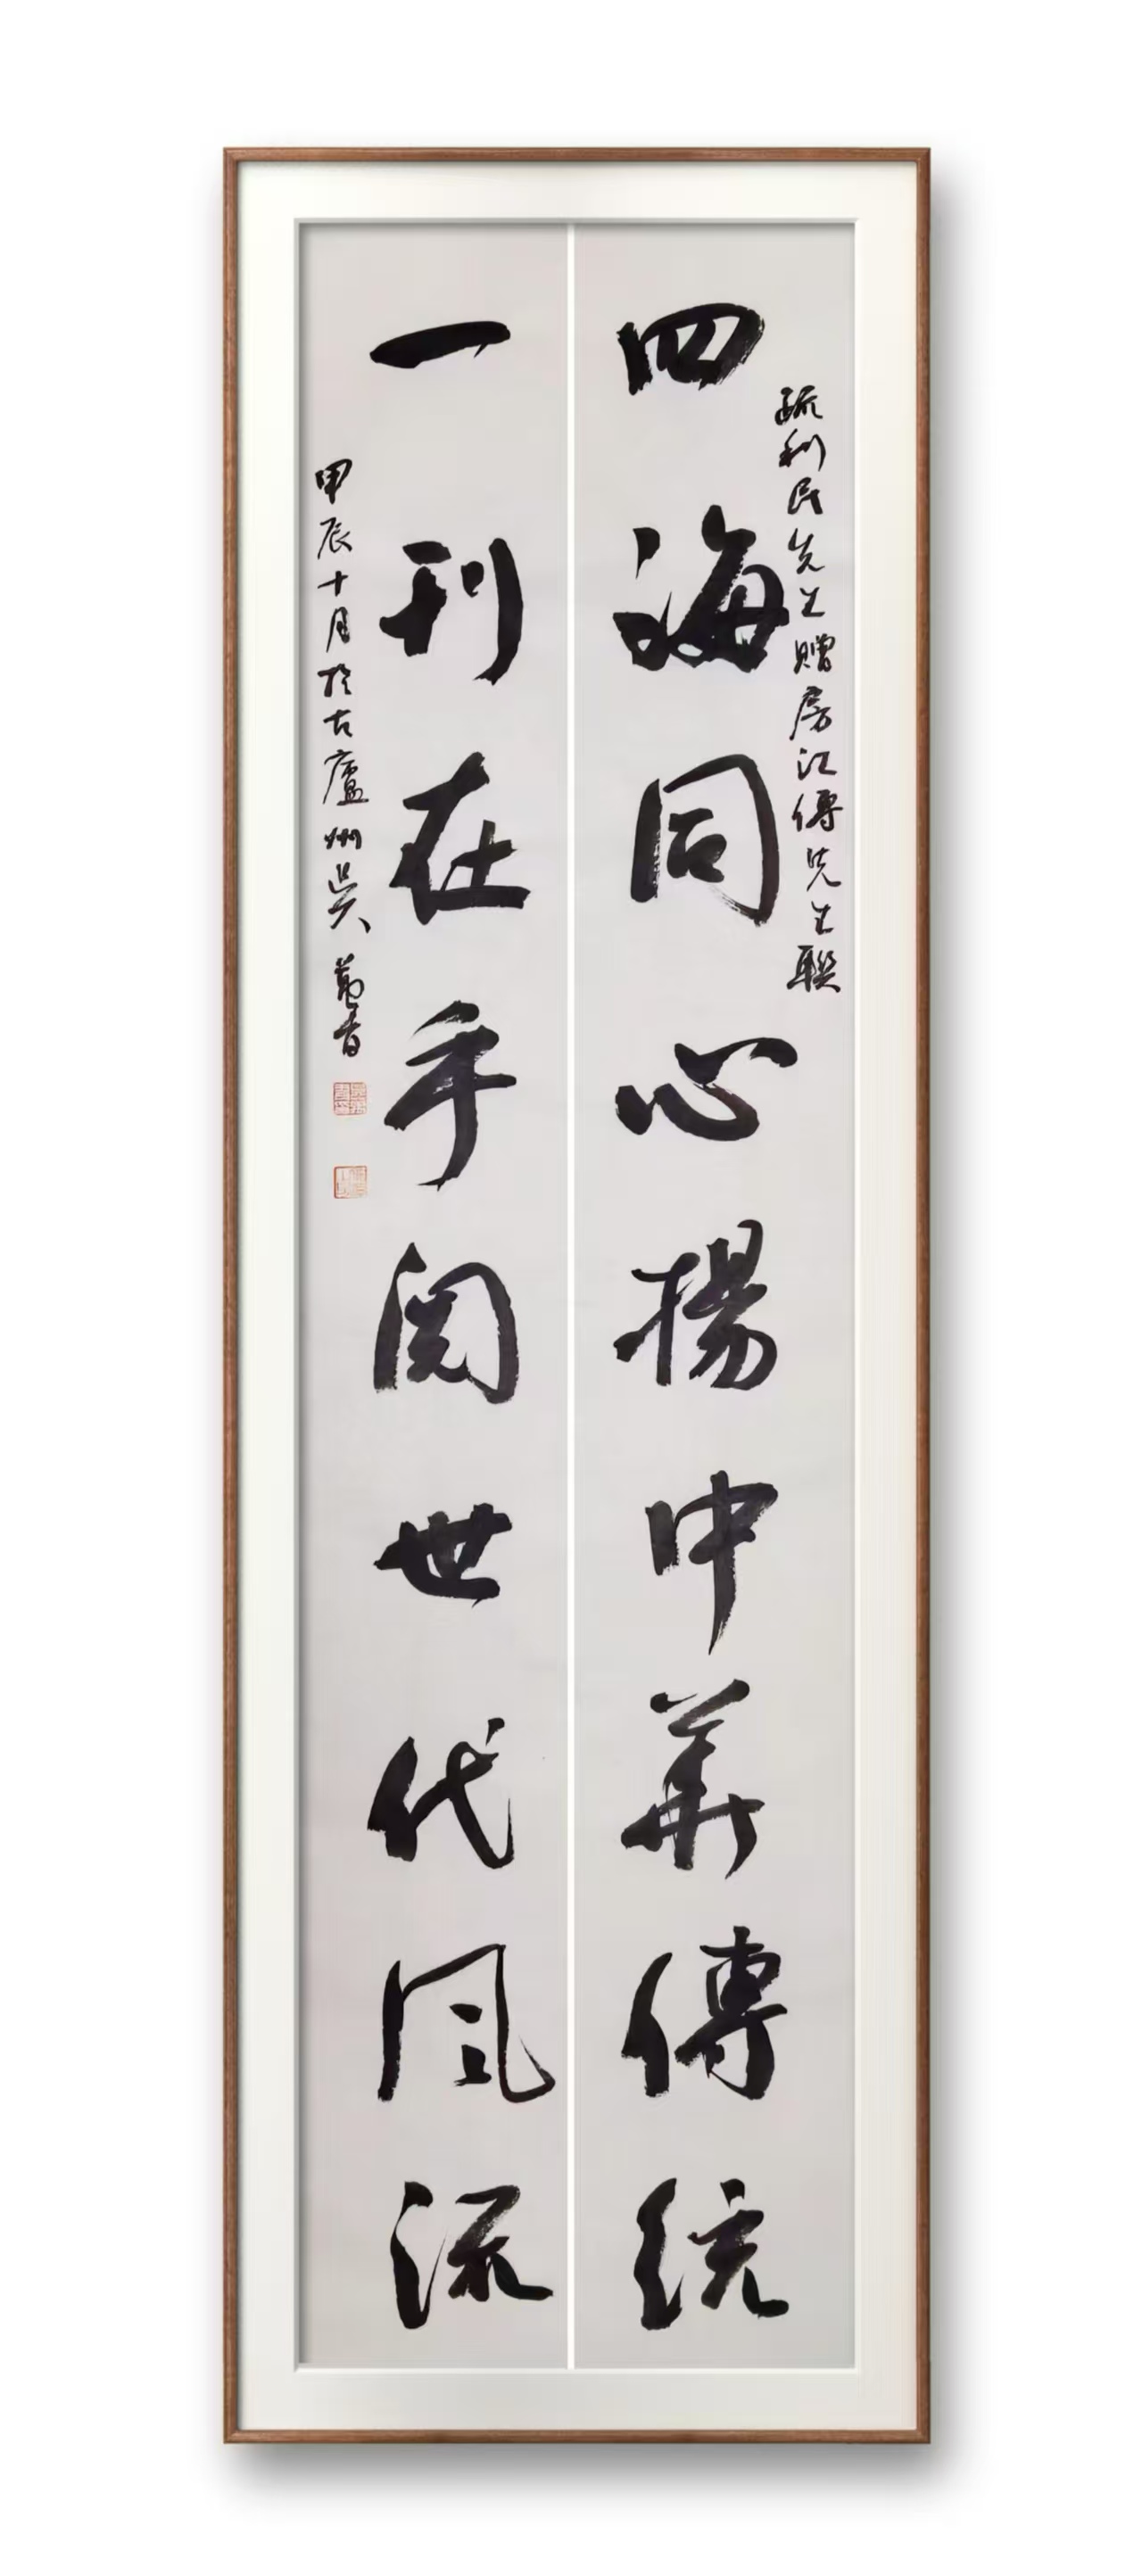 四海同心揚中華傳統
疏利民先生贈房江傳先生聯
一刊在手閱世代風流
甲辰十月於古廬州吳